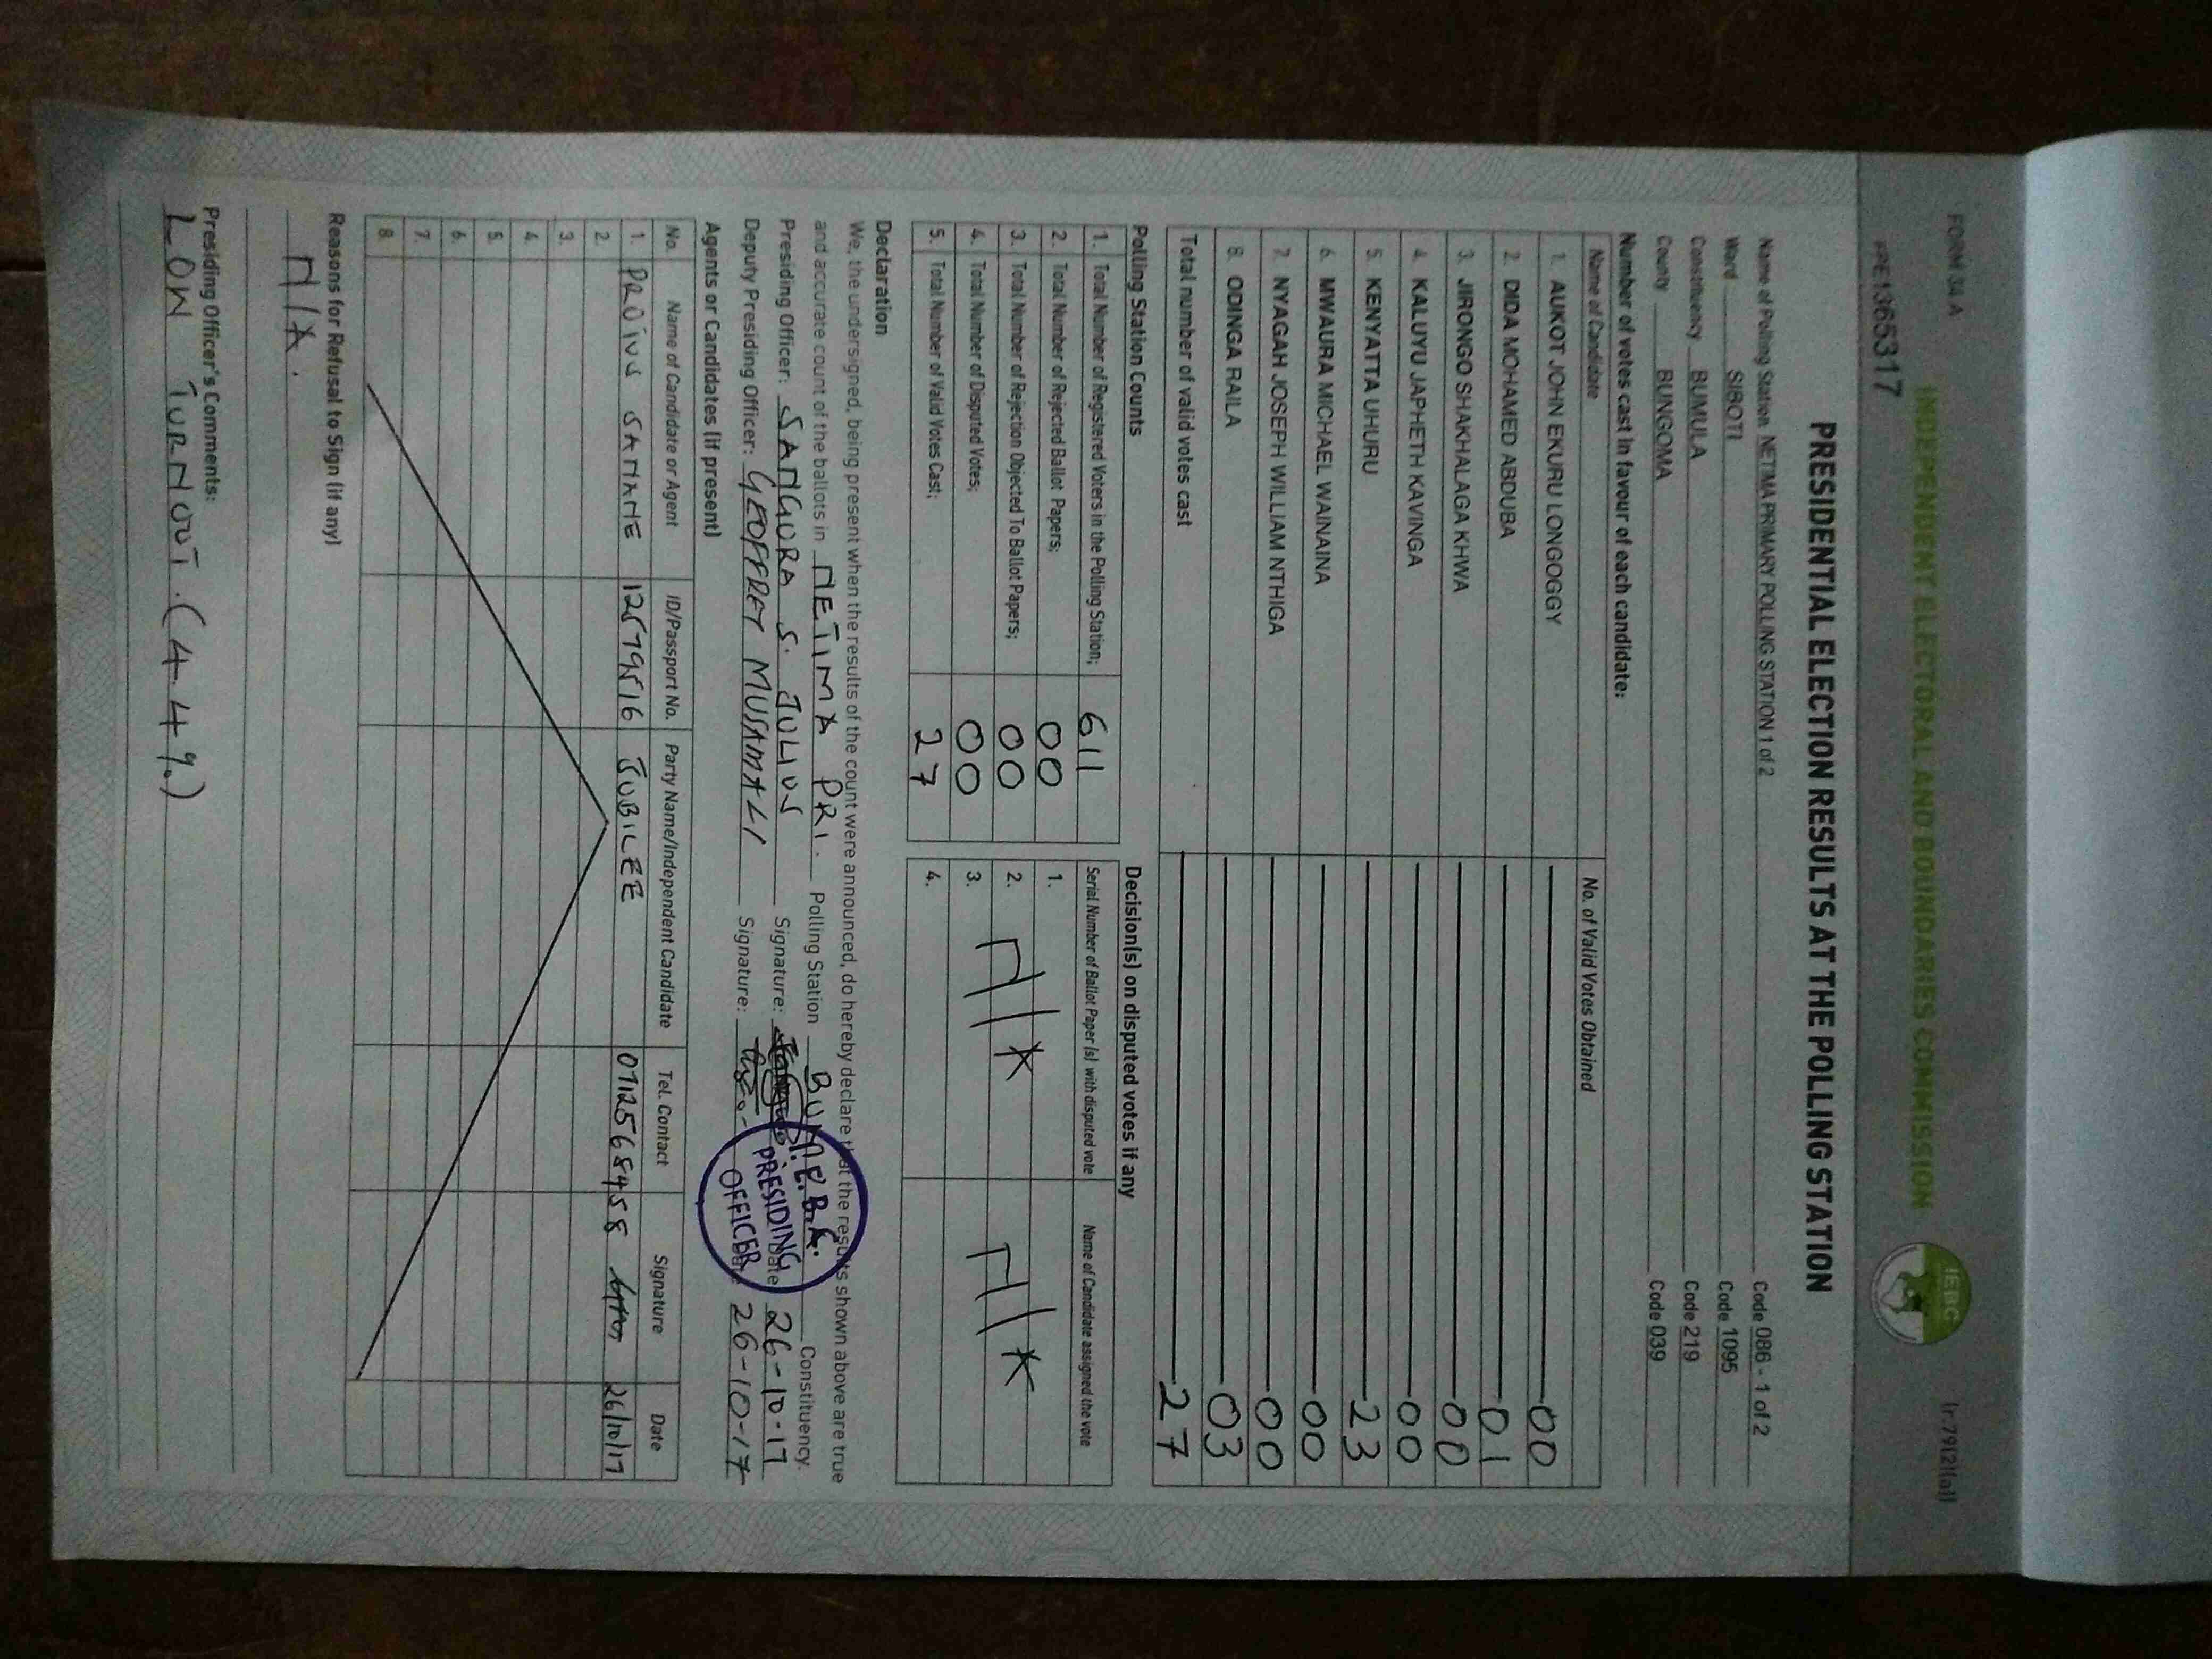 FORM 34 A (r.79(2)(a))
INDEPENDENT ELECTORAL AND BOUNDARIES COMMISSION
IEBC
PRE1365317
PRESIDENTIAL ELECTION RESULTS AT THE POLLING STATION
Name of Polling Station NETIMA PRIMARY POLLING STATION 1 of 2 Code 086 - 1 of 2
Ward SIBOTI Code 1095
Constituency BUMULA Code 219
County BUNGOMA Code 039
Number of votes cast in favour of each candidate:
Name of Candidate No. of Valid Votes Obtained
1. AUKOT JOHN EKURU LONGOGGY 00
2. DIDA MOHAMED ABDUBA 01
3. JIRONGO SHAKHALAGA KHWA 00
4. KALUYU JAPHETH KAVINGA 00
5. KENYATTA UHURU 23
6. MWAURA MICHAEL WAINAINA 00
7. NYAGAH JOSEPH WILLIAM NTHIGA 00
8. ODINGA RAILA 03
Total number of valid votes cast 27
Polling Station Counts Decision(s) on disputed votes if any
Serial Number of Ballot Paper (s) with disputed vote Name of Candidate assigned the vote
1. Total Number of Registered Voters in the Polling Station; 611
2. Total Number of Rejected Ballot Papers; 00 1.
3. Total Number of Rejection Objected To Ballot Papers; 00 2. N/A N/A
4. Total Number of Disputed Votes; 00 3.
5. Total Number of Valid Votes Cast; 27 4.
Declaration
We, the undersigned, being present when the results of the count were announced, do hereby declare that the results shown above are true
and accurate count of the ballots in NETIMA PRI. Polling Station Constituency.
Presiding Officer: SANGURA S. JULIUS Signature: Date 26-10-17
Deputy Presiding Officer: GEOFFREY MUSAMALI Signature: Date 26-10-17
I.E.B.C.
PRESIDING
OFFICER
Agents or Candidates (if present)
No. Name of Candidate or Agent ID/Passport No. Party Name/Independent Candidate Tel. Contact Signature Date
1. SANANE JUBILEE 0712568458 26/10/17
2.
3.
4.
5.
6.
7.
8.
Reasons for Refusal to Sign (if any)
N/A.
Presiding Officer's Comments:
LOW TURNOUT. (4.4%)